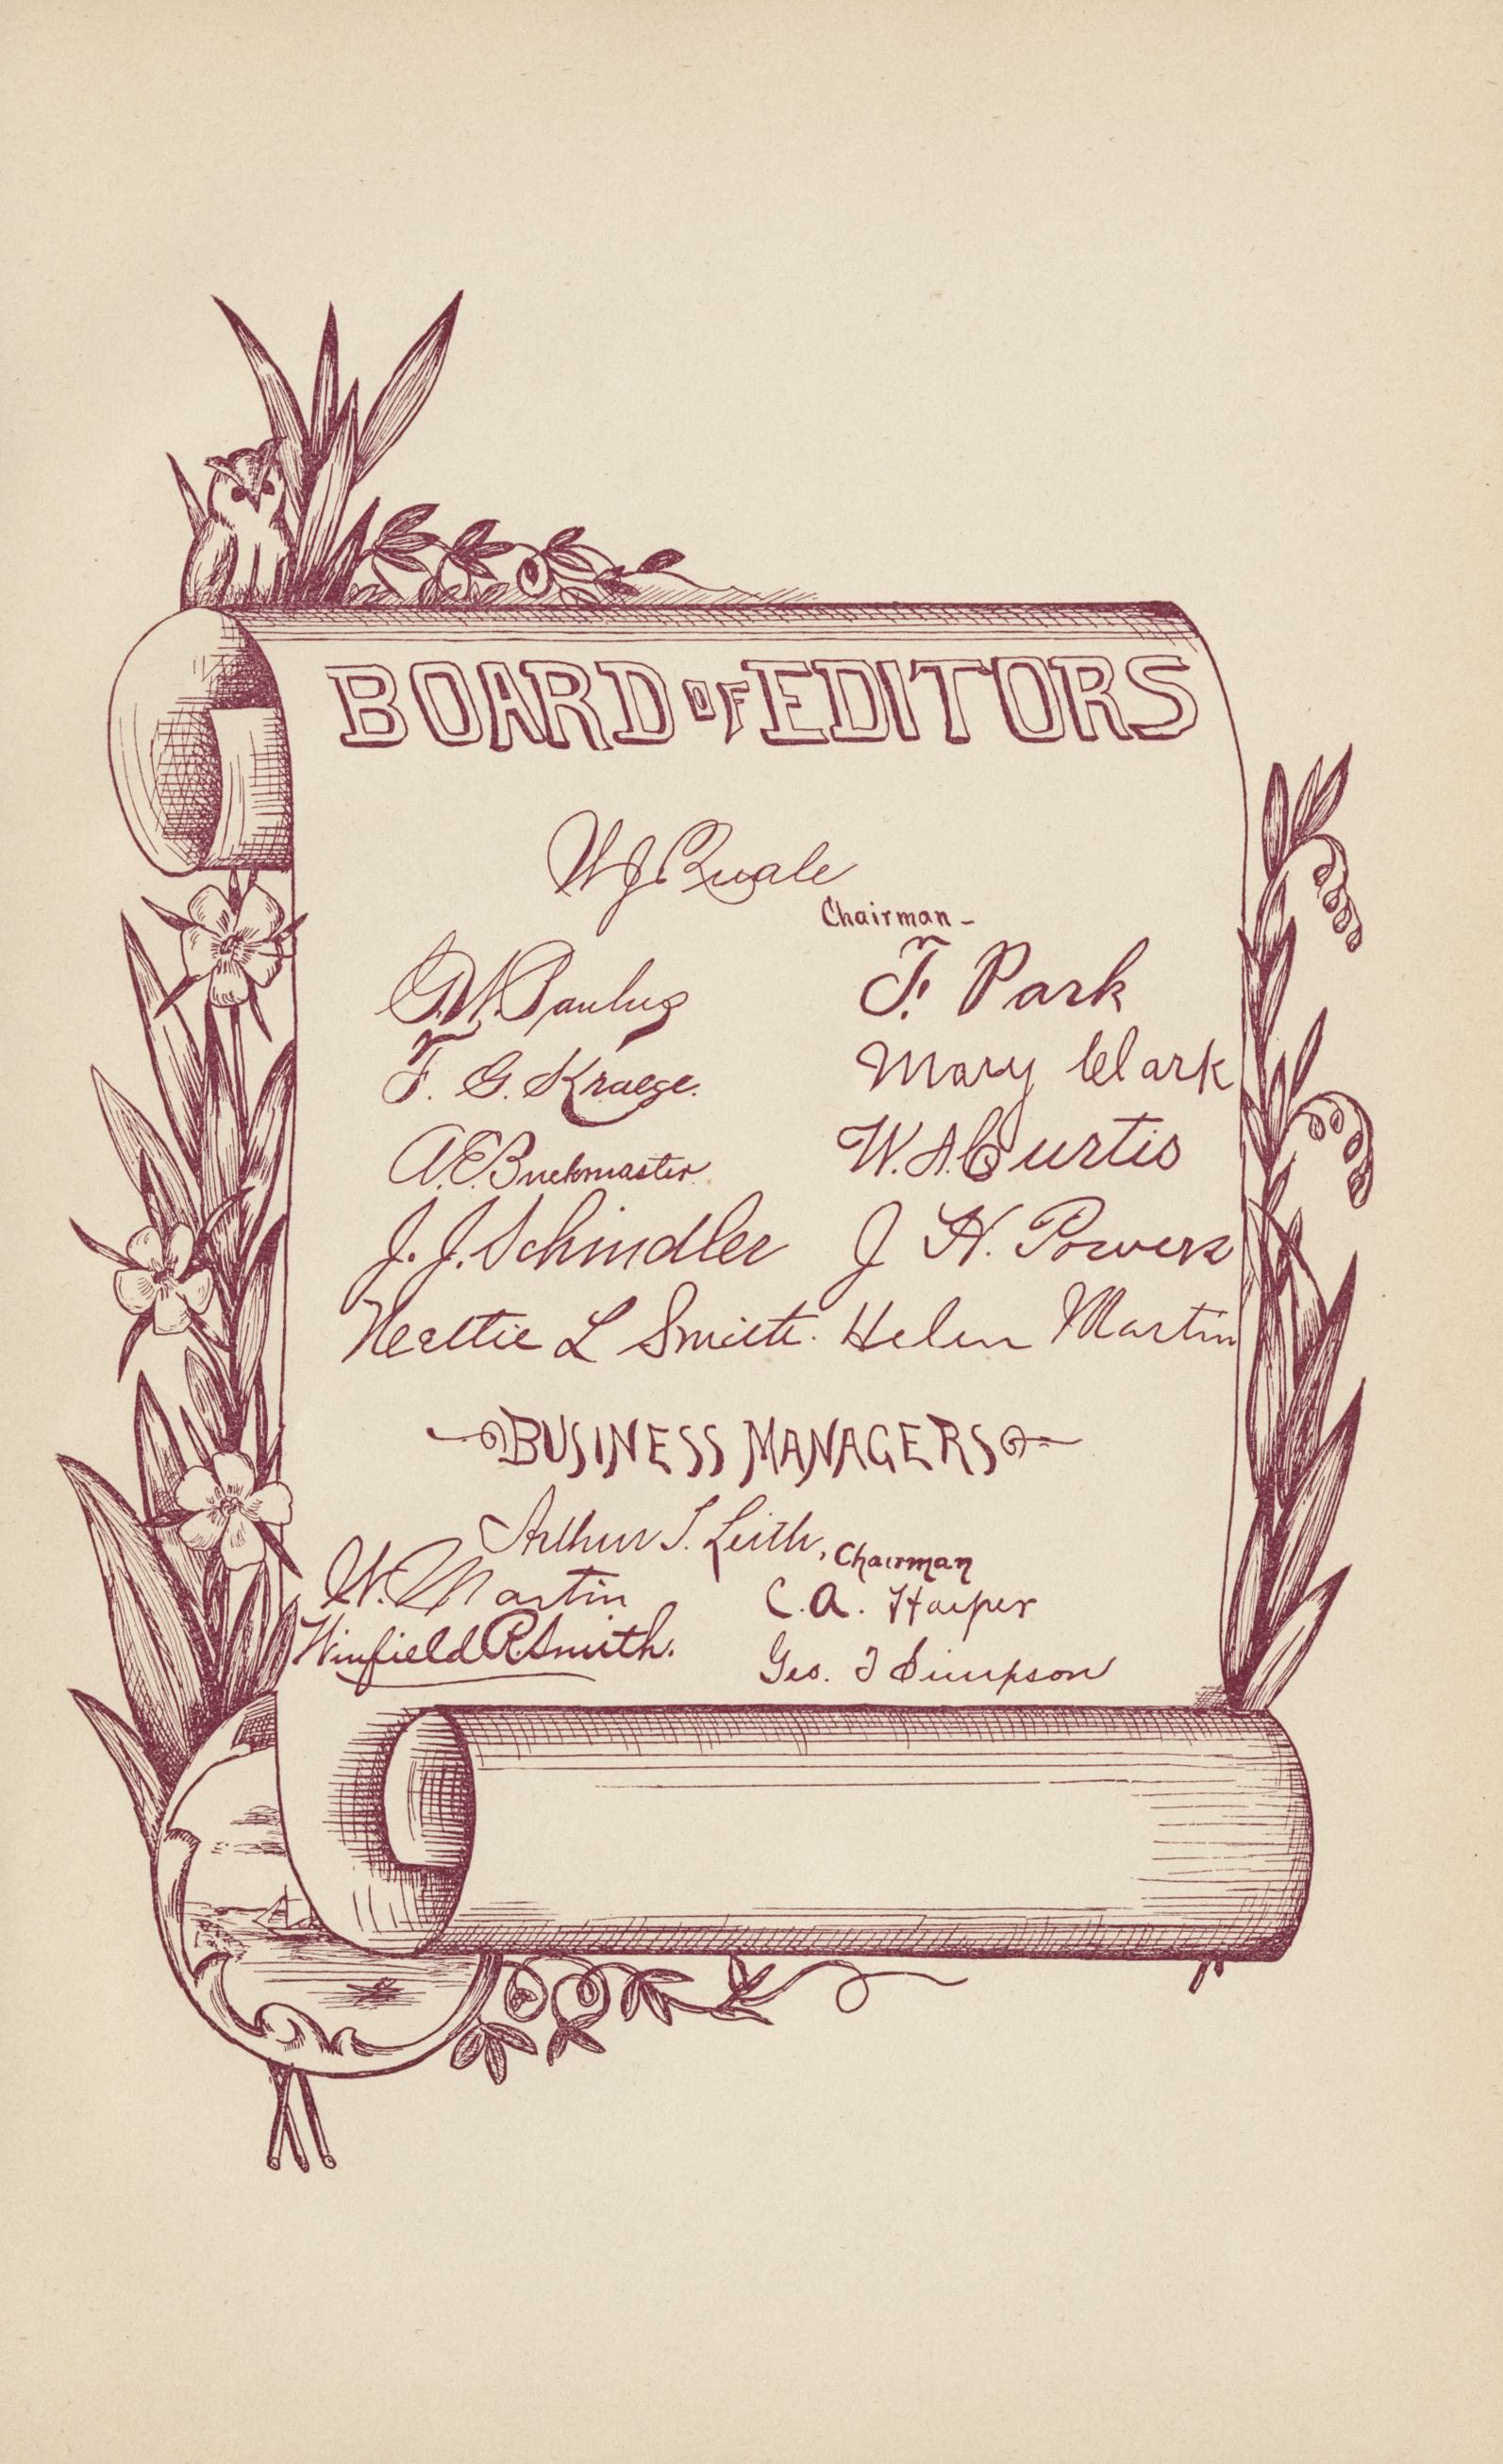 BOARD OF EDITORS
W J Quale
Chairman -
G.W. Paulus F. Park
F. G. Kraege. Mary Clark
A.E. Buckmaster. W. A. Curtis
J. J. Schindler J H. Powers
Nettie L Smith. Helen Martin
BUSINESS MANAGERS
Arthur T. Leith, Chairman
W. Martin C. A. Harper
Winfield R. Smith. Geo. T Simpson